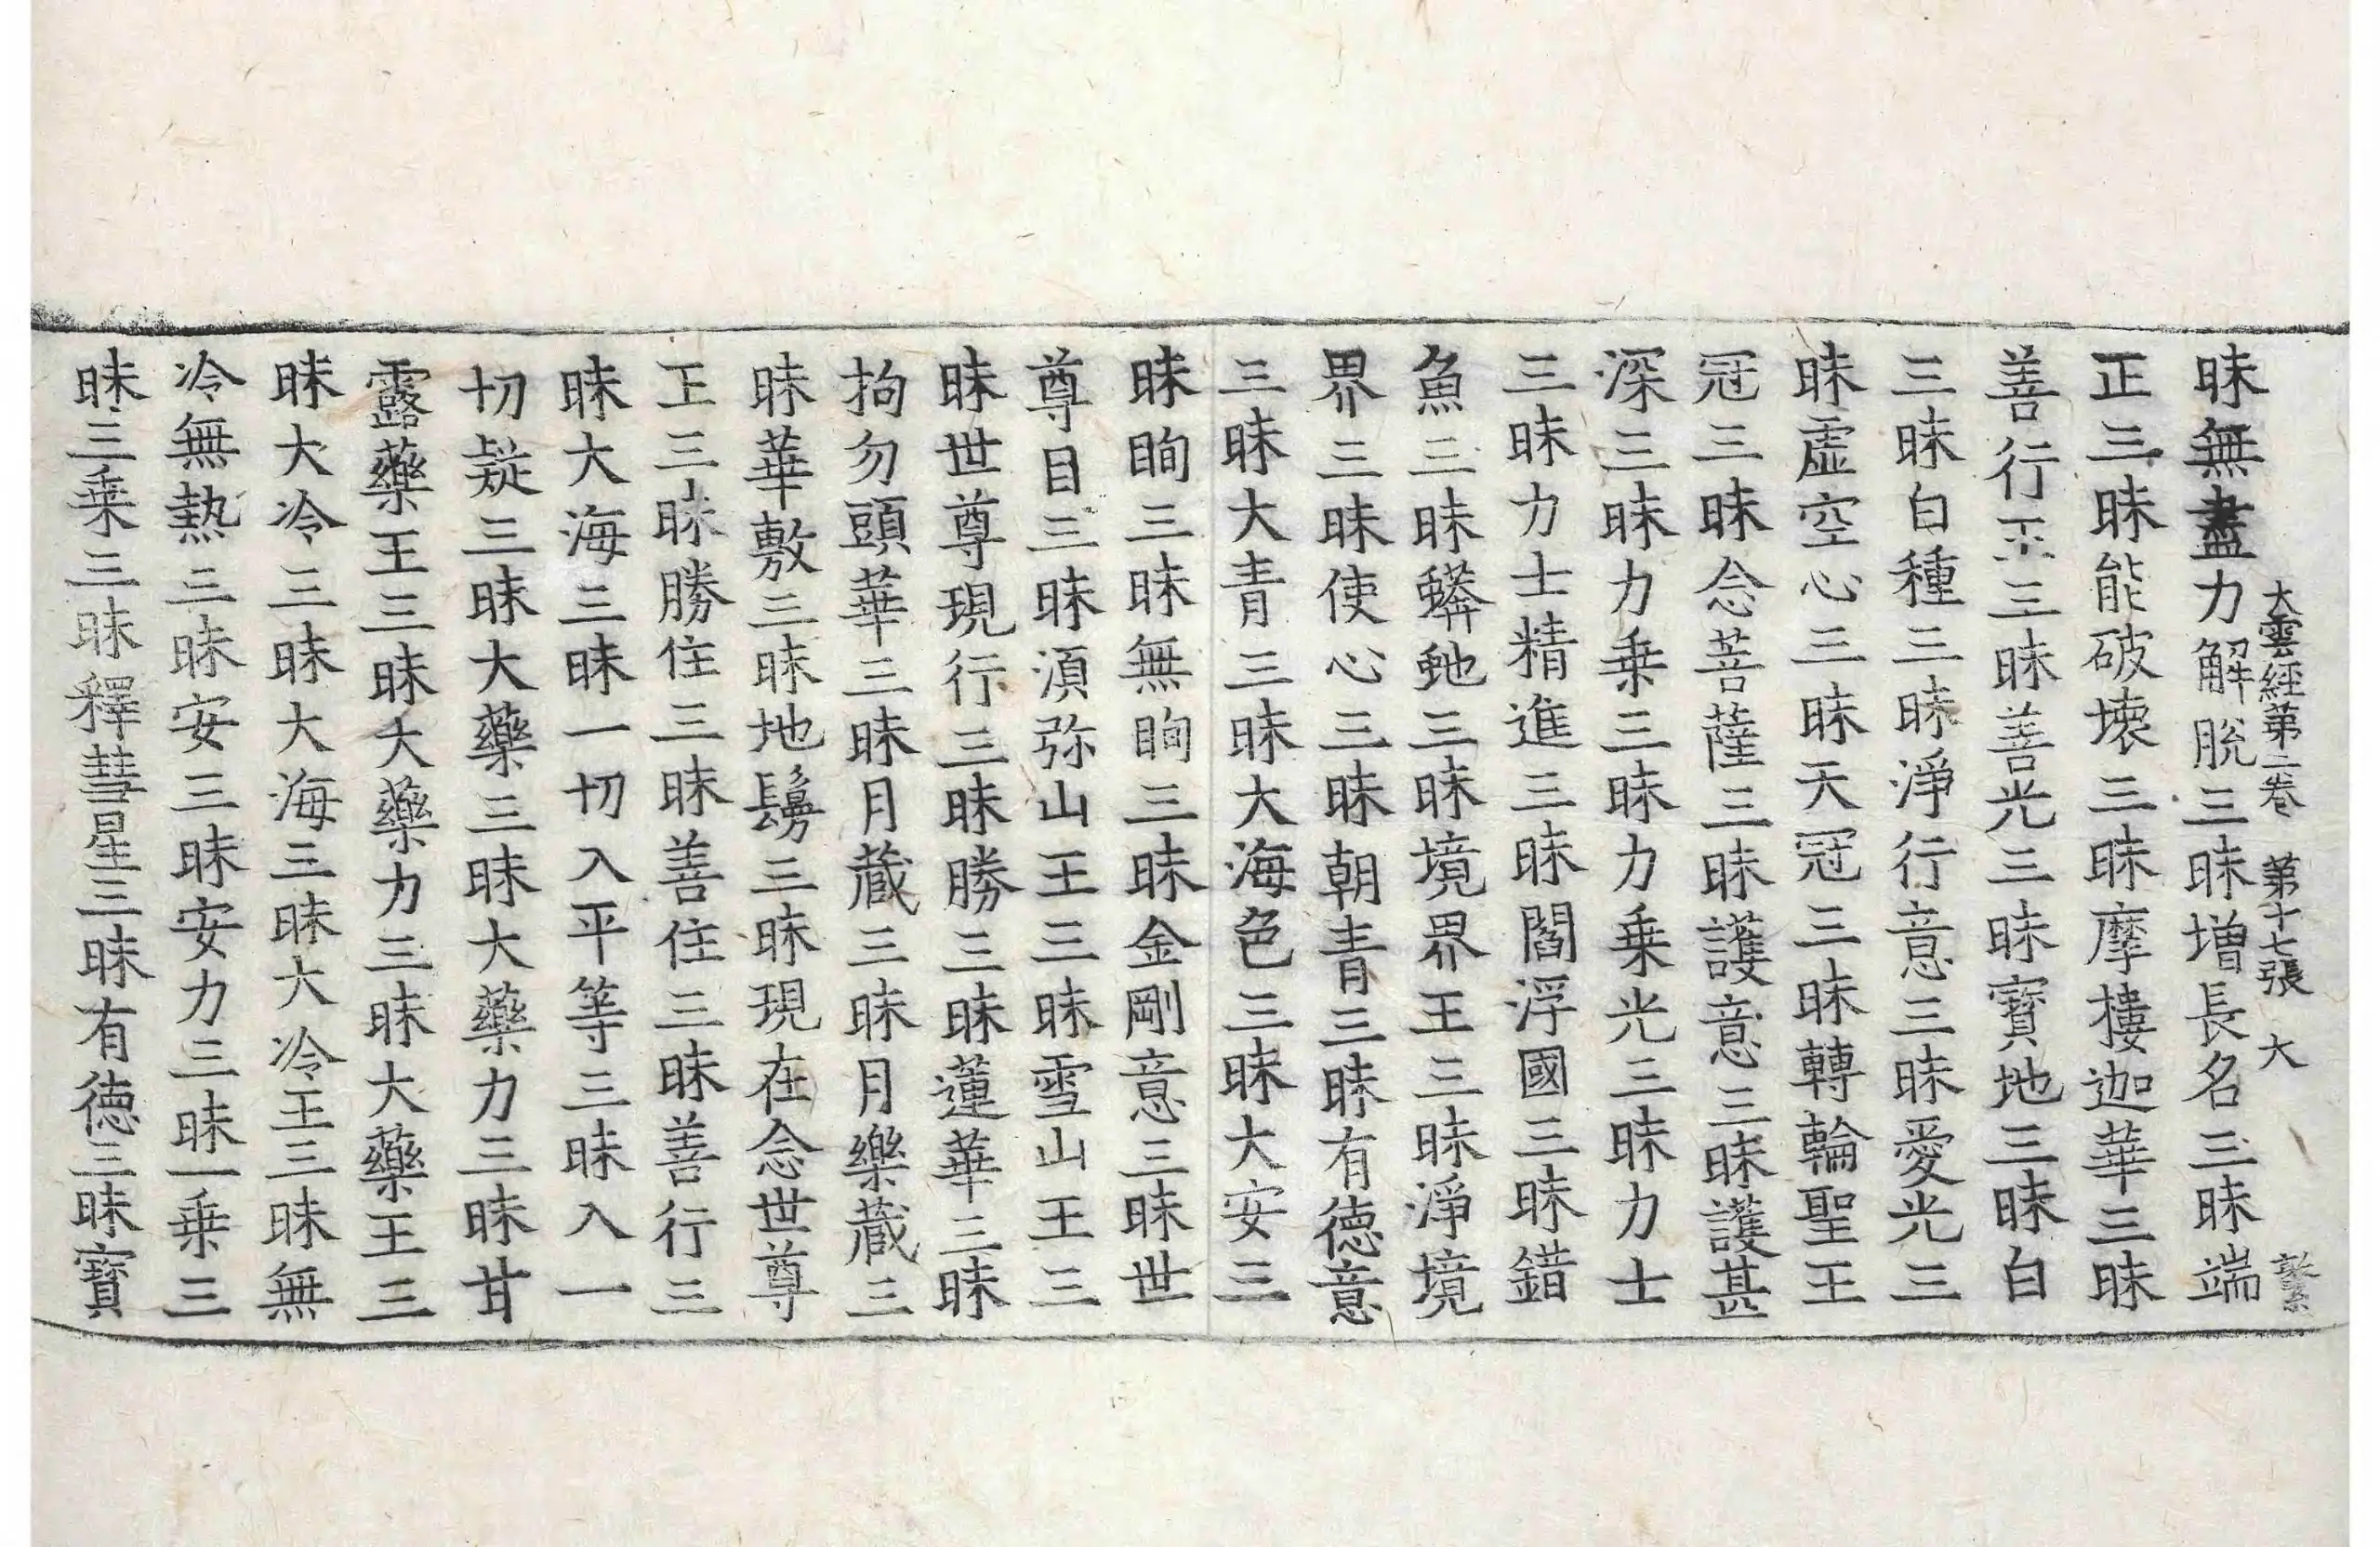 大雲經第二卷 第十七張 大
昧無盡力解脫三昧增長名三昧端
正三昧能破壞三昧摩樓迦華三昧
善行王三昧善光三昧寶地三昧白
三昧白種三昧淨行意三昧愛光三
昧虛空心三昧天冠三昧轉輪聖王
冠三昧念菩薩三昧護意三昧護甚
深三昧力乗三昧力乗光三昧力士
三昧力士精進三昧閻浮國三昧錯
魚三昧蟒虵三昧境界王三昧淨境
界三昧使心三昧朝青三昧有德意
三昧大青三昧大海色三昧大安三
昧眴三昧無眴三昧金剛意三昧世
尊目三昧湏弥山王三昧雪山王三
昧世尊現行三昧勝三昧蓮華三昧
拘勿頭華三昧月藏三昧月樂藏三
昧華敷三昧地鬘三昧現在念世尊
三昧勝住三昧善住三昧善行三
昧大海三昧一切入平等三昧入一
切疑三昧大藥三昧大藥力三昧甘
露藥王三昧大藥力三昧大藥王三
昧大冷三昧大海三昧大冷王三昧無
冷無熱三昧安三昧安力三昧一乗三
昧三乗三昧釋彗星三昧有德三昧寶